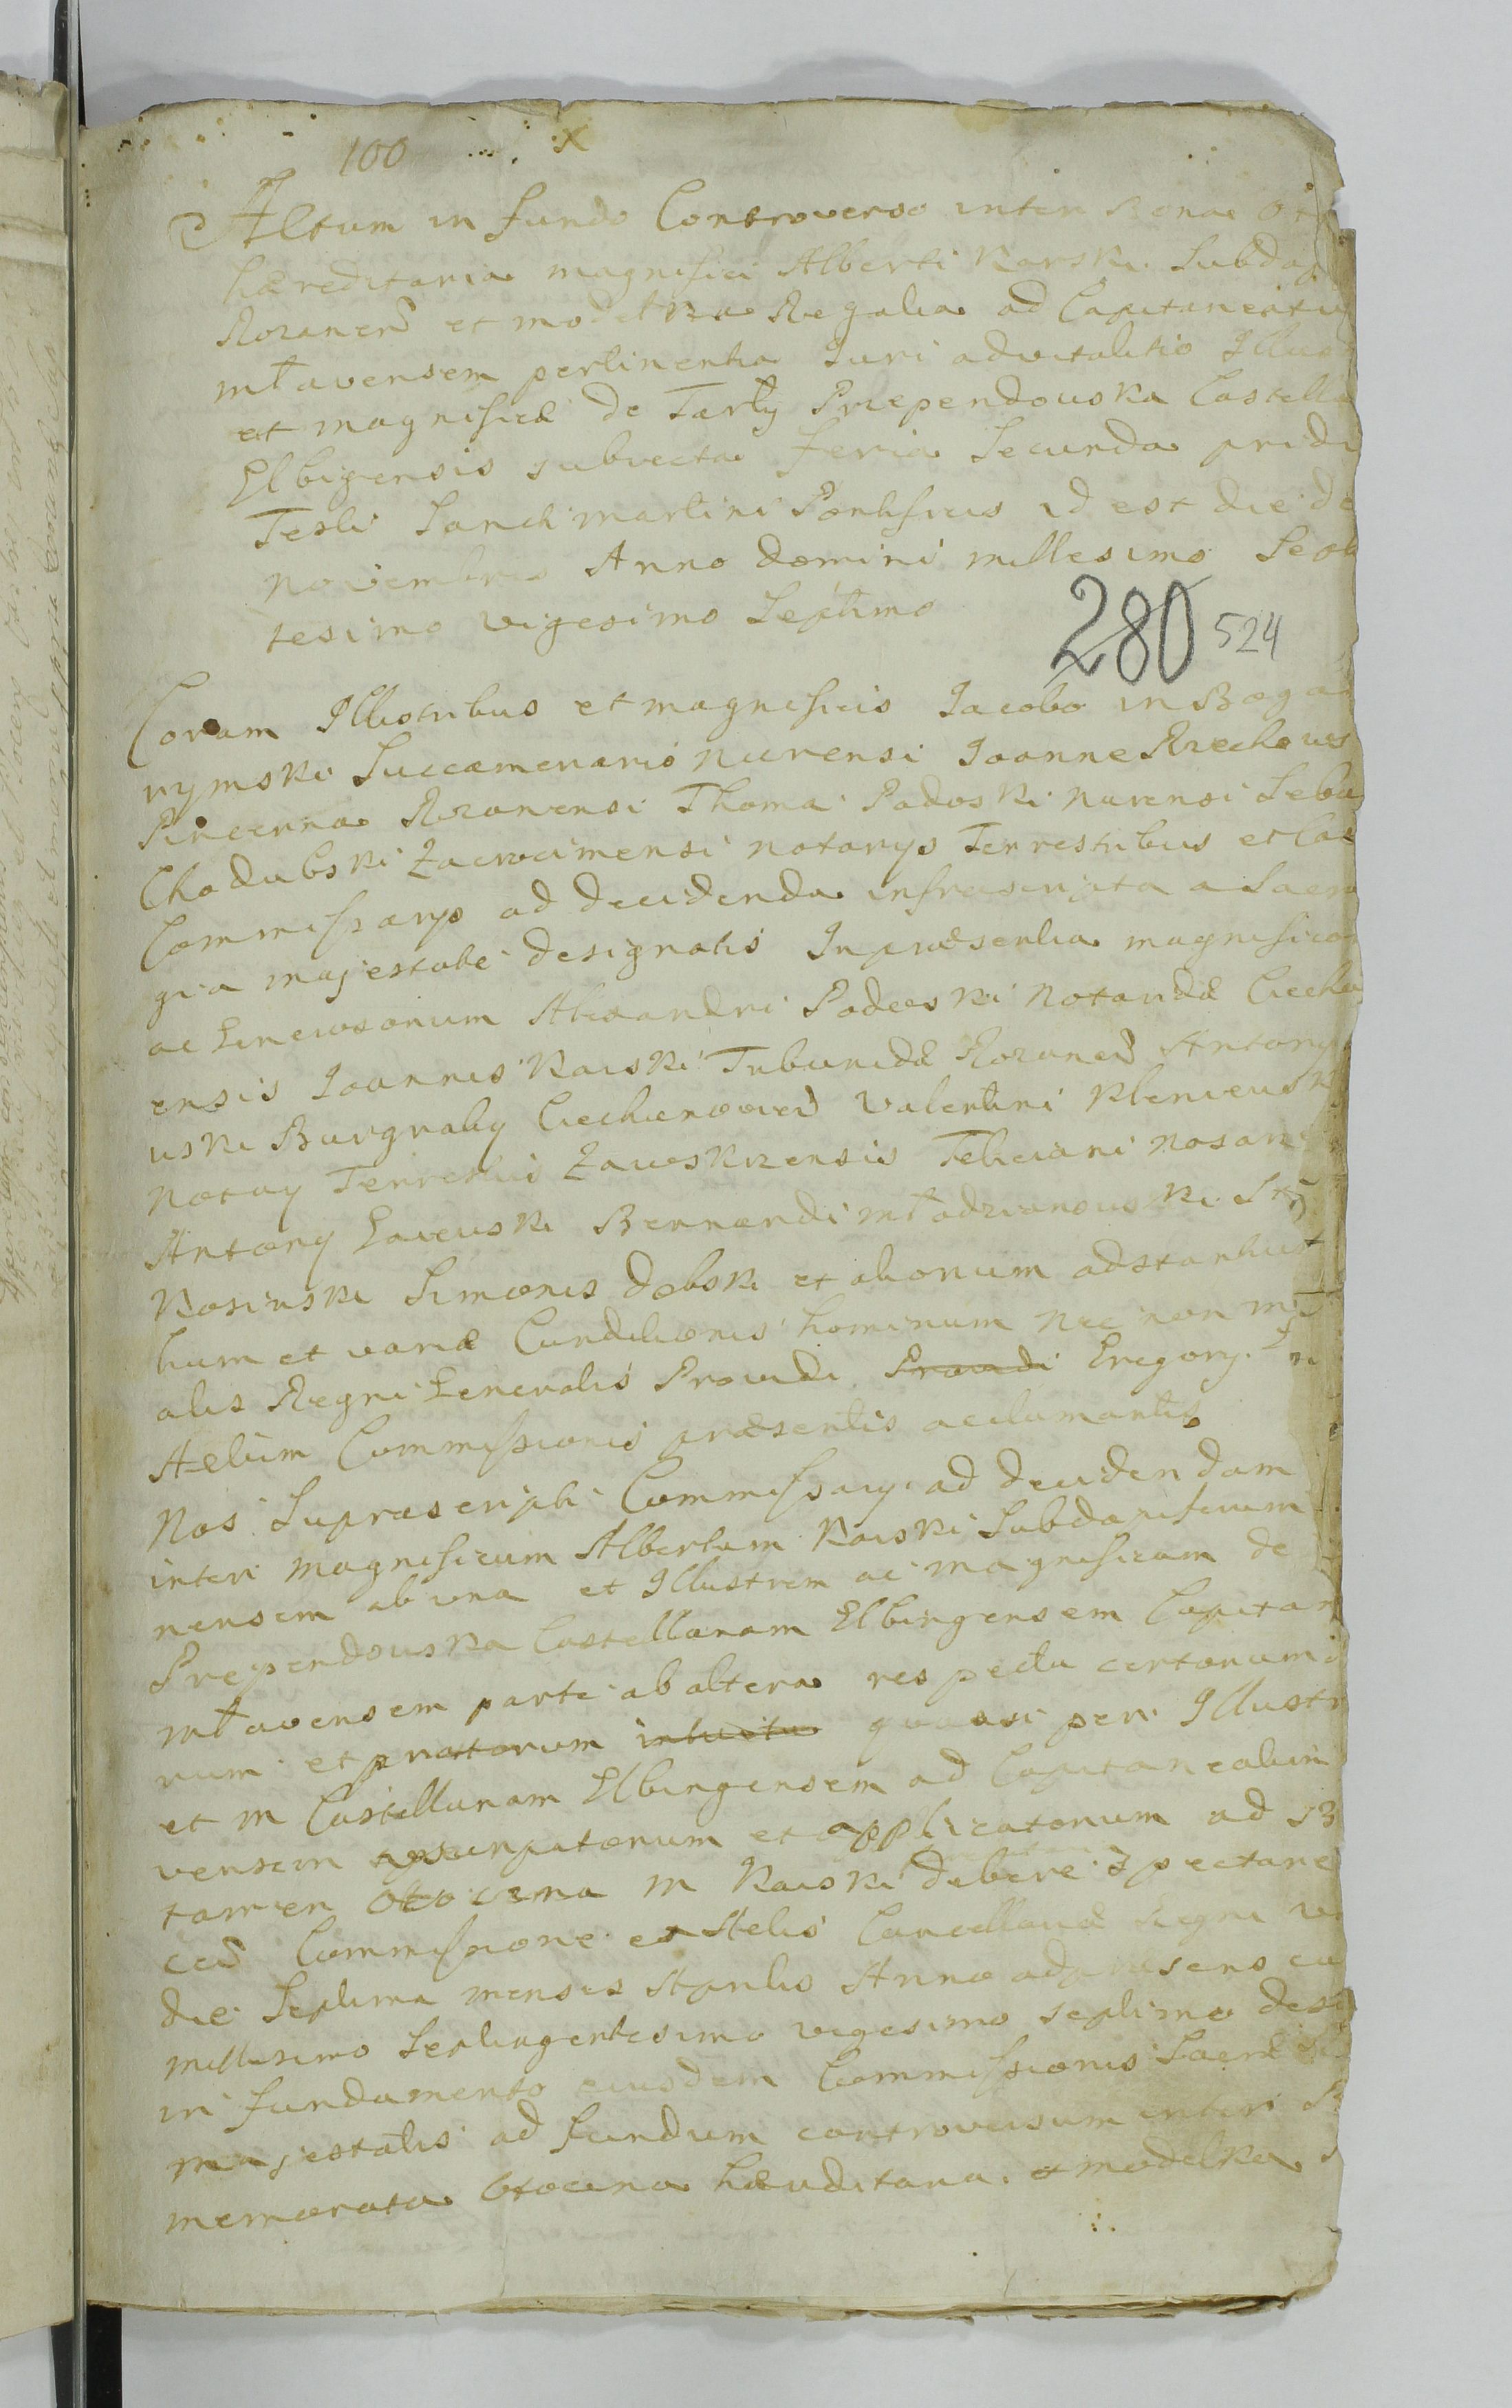 100 x
Actum in fundo Controverso inter Bona Oto
hæreditaria magnifici Alberti Karski Subdap
Rozanens et modelka Regalia ad Capitaneatu
młavensem pertinentia Juri advitalitio Illus
et magnificæ de Tarły Przependowska Castella
Elbigensis subvecta feria Secunda pridi
Festi Sancti martini Pontificis id est die de
novembris Anno domini millesimo Sept
tesimo vigesimo Septimo
280 524
Coram Illustribus et magnificis Jacobo in Boga
rymski Succamerario nurensi Joanne Rzechows
Pincerna Rozanensi Thoma Padoski nurensi Seba
Chadubski Zacrocimensi notarys Terrestribus et Cas
Commissarys ad decidenda infrascripta a Sacra
gia majestate designatis Inpræsentia magnifico
ac Generosorum Alexandri Podoski Notaridæ Ciecha
ensis Joannis Karski Tribunidæ Rozanens Antony
uski Burgraby Ciechanovien Valentini Klenieuski
Notary Terrestris Zawskrzensis Feliciani nosarz
Antony Gaieuski Bernardi młodzianouski St
Kosinski Simonis dobski et aliorum adstantiu
tium et variæ Conditionis hominum nec non mi
alis Regni Generalis Providi Providi Gregory
Actum Commissionis præsentis acclamantis
Nos Suprascripti Commissary ad decidendam
inter magnificum Albertum Karski Subdapiferum
nensem ab una et Illustrem ac magnificam de
Prependouska Castellanam Elbingensem Capitan
młavensem parte ab altera respectu certorum
rum et prattorum intuitu quasi per Illustr
et m Castellanam Elbingensem ad Capitaneatum
vensem usurpatorum et applicatorum ad B
tamen Otoczna m Karski debere spectare
ced Commissione ex Actis Cancellariæ Regni
die Septima mensis Aprilis Anno adpræsens cu
millesimo Septingentesimo vigesimo septimo desi
in fundamento eiusdem Commissionis Sacræ
majestatis ad fundum controversum inter B
memorata Otocina hæreditaria et modelka